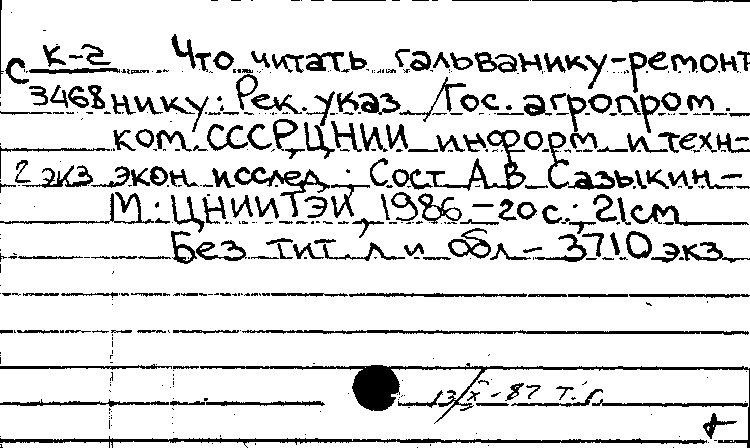 К-2 Что читать гальванику-ремонт
С 3468 нику: Рек. указ /Гос. агропром.
ком. СССР, ЦНИИ информ. и техн-
2 экз экон. исслед.; Сост А.В. Сазыкин.-
М.: ЦНИИТЭИ, 1986.-20с.; 21см
Без тит. л и обл - 3710 экз
13/X-87 т.г.